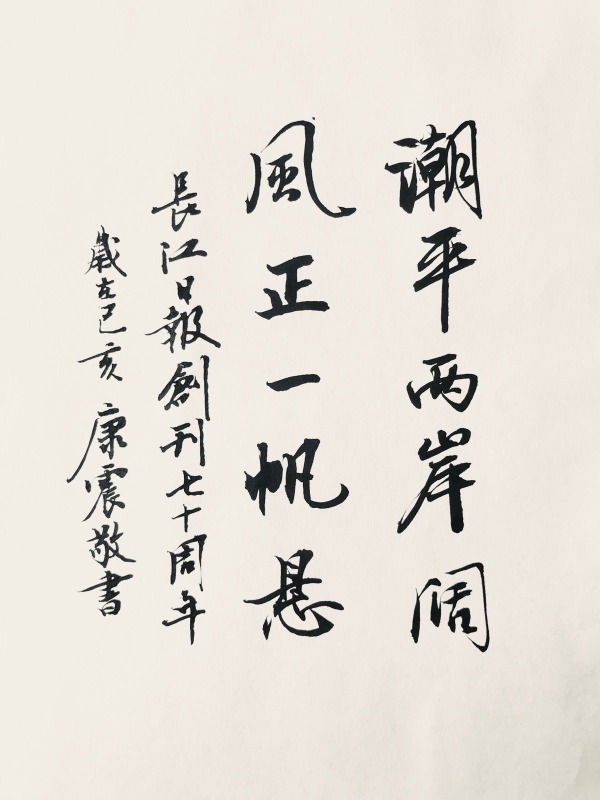 潮平两岸闊
風正一帆懸
長江日報創刊七十周年
歲在己亥 康震敬書